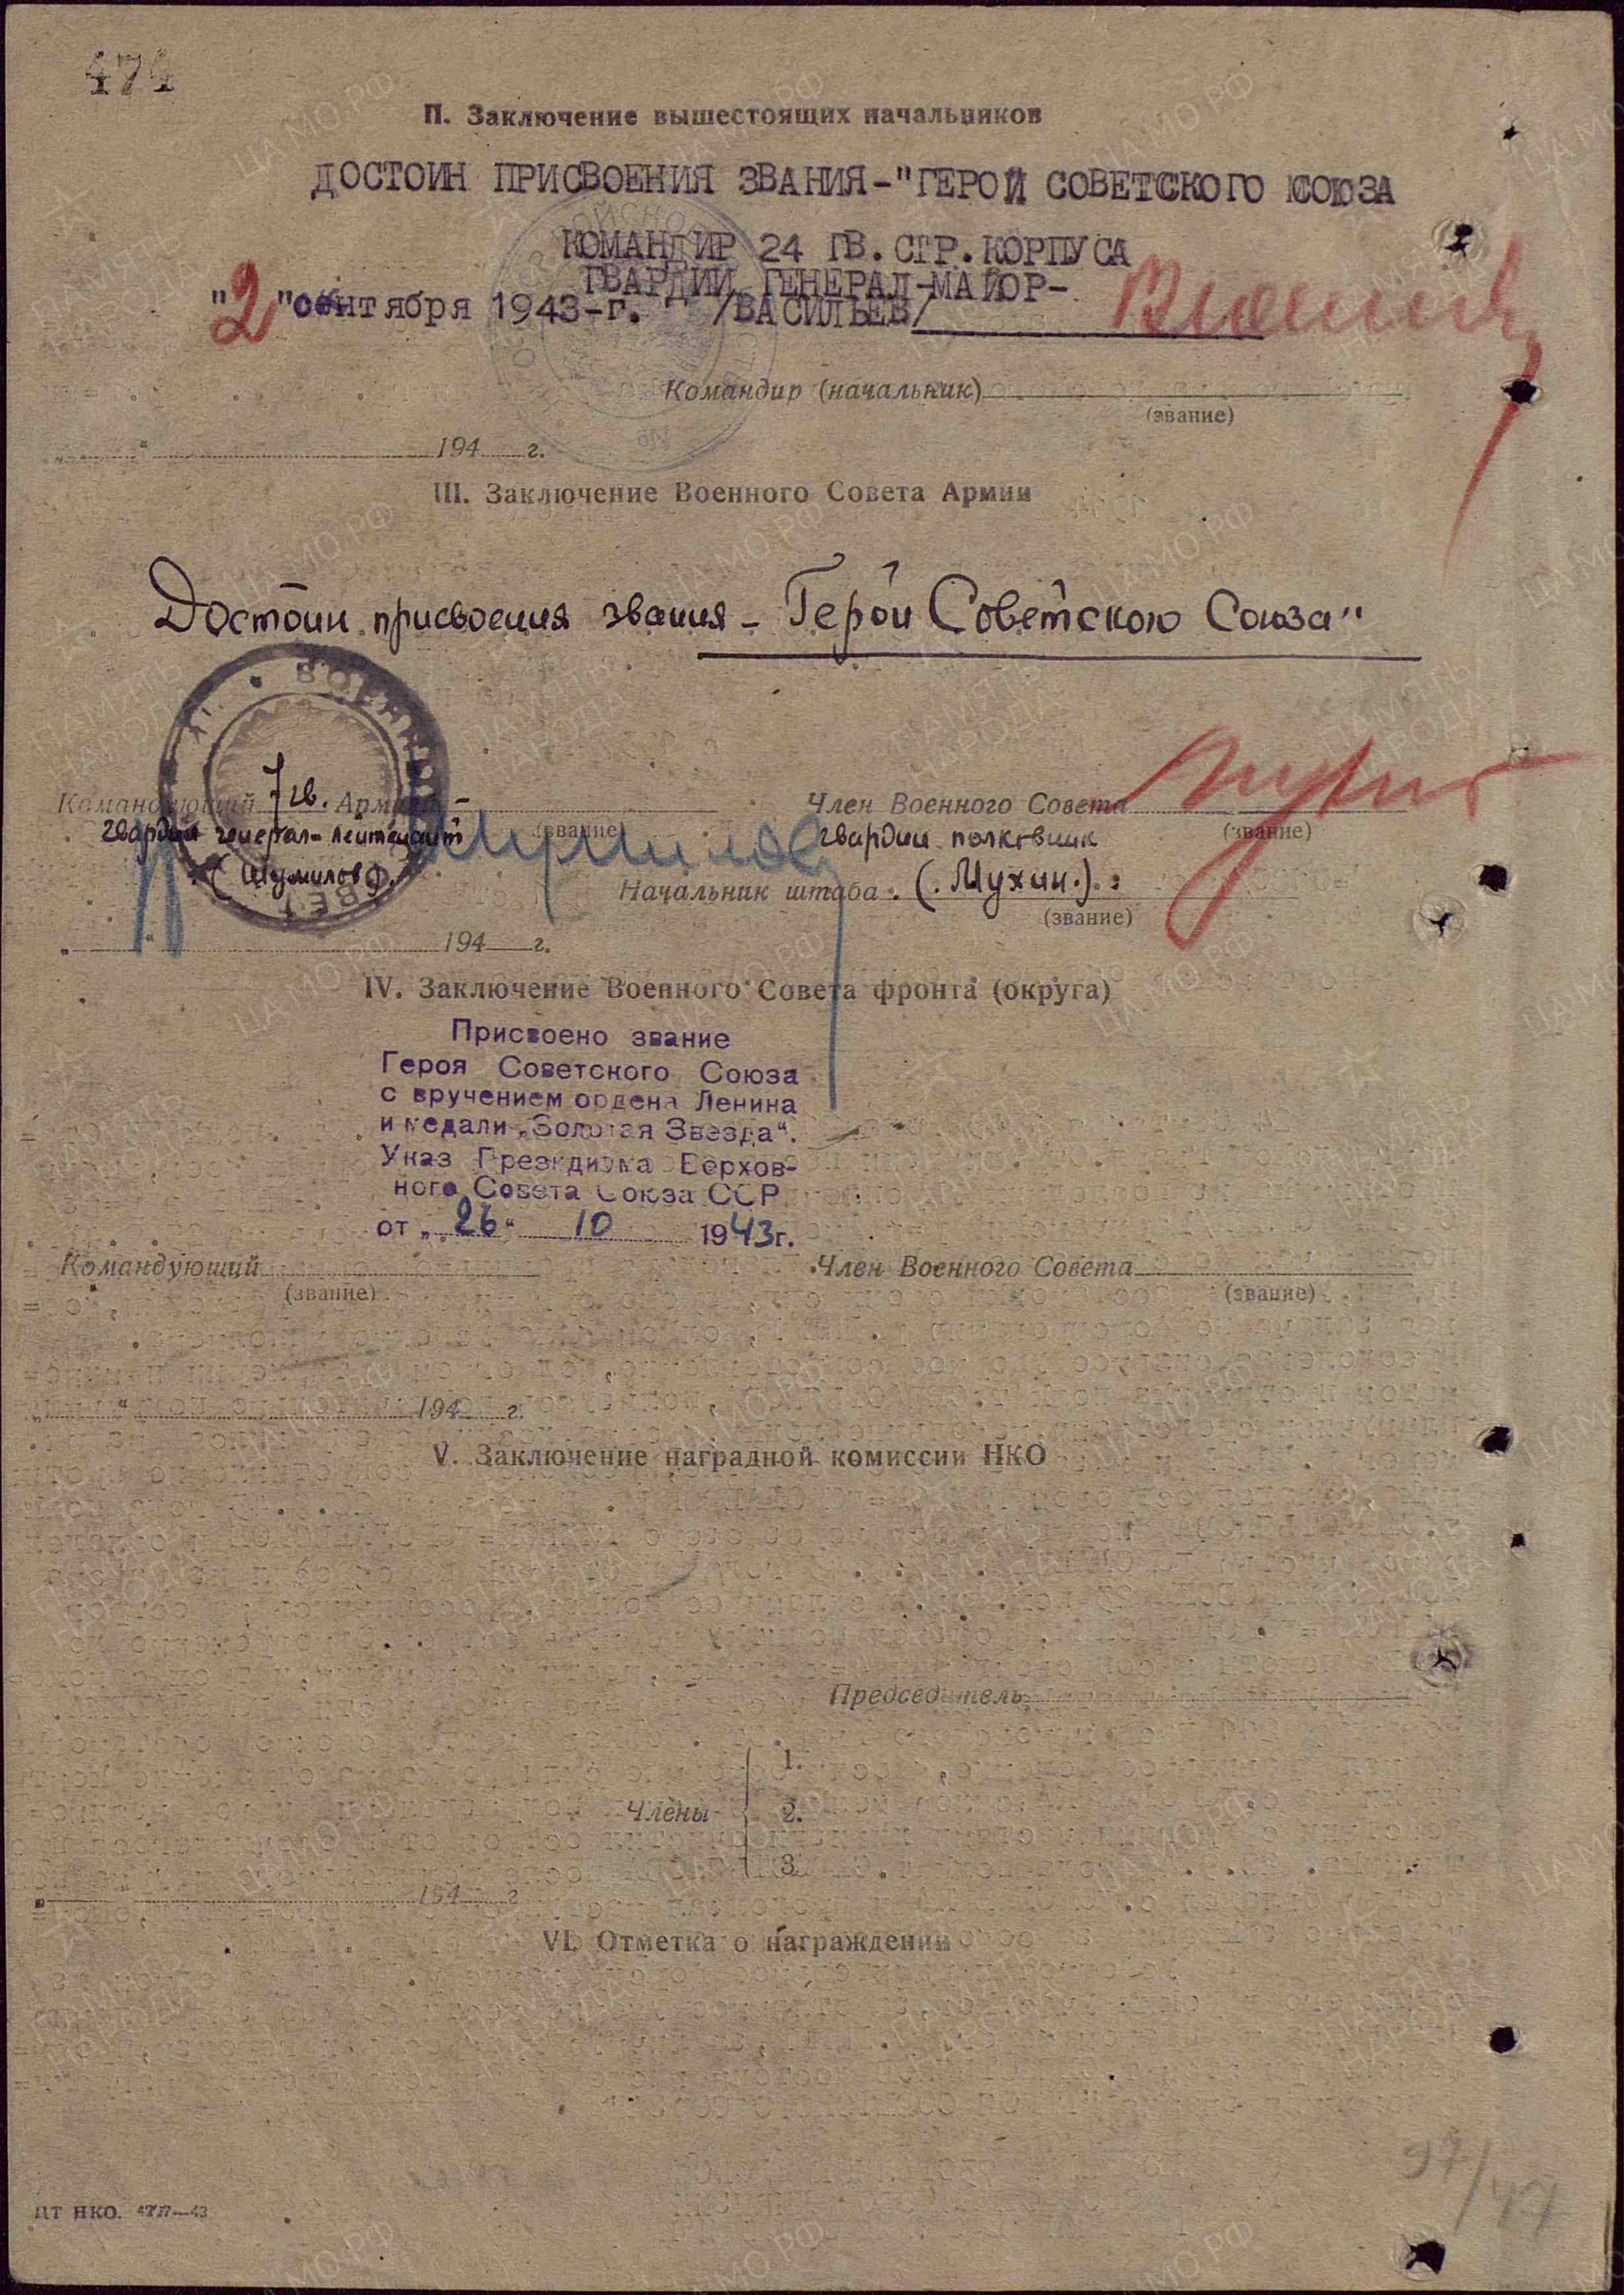 474
П. Заключение вышестоящих начальников
ДОСТОИН ПРИСВОЕНИЯ ЗВАНИЯ-"ГЕРОЙ СОВЕТСКОГО СОЮЗА
КОМАНДИР 24 ГВ.СТР.КОРПУСА
ГВАРДИИ ГЕНЕРАЛ-МАЙОР-
"2"сентября 1943-г. /ВАСИЛЬЕВ/
Командир (начальник)
(звание)
194 г.
III. Заключение Военного Совета Армии
Достоин присвоения звания - Герой Советского Союза"
ВОЕННЫЙ
Командующий 7 гв. Армией -
Член Военного Совета
(звание)
(звание)
гвардии генерал-лейтенант
гвардии полковник
(Шумилов).
Начальник штаба (.Мухин.).
(звание)
194 г.
IV. Заключение Военного Совета фронта (округа)
Присвоено звание
Героя Советского Союза
с вручением ордена Ленина
и медали „Золотая Звезда“.
Указ Президиума Верхов-
ного Совета Союза ССР
от „26“ 10 1943г.
Командующий
Член Военного Совета
(звание)
(звание)
194 г.
V. Заключение наградной комиссии НКО
Председатель
Члены
1.
2.
3.
194 г.
VI. Отметка о награждении
97/47
ЦАМО.РФ
ПАМЯТЬ НАРОДА